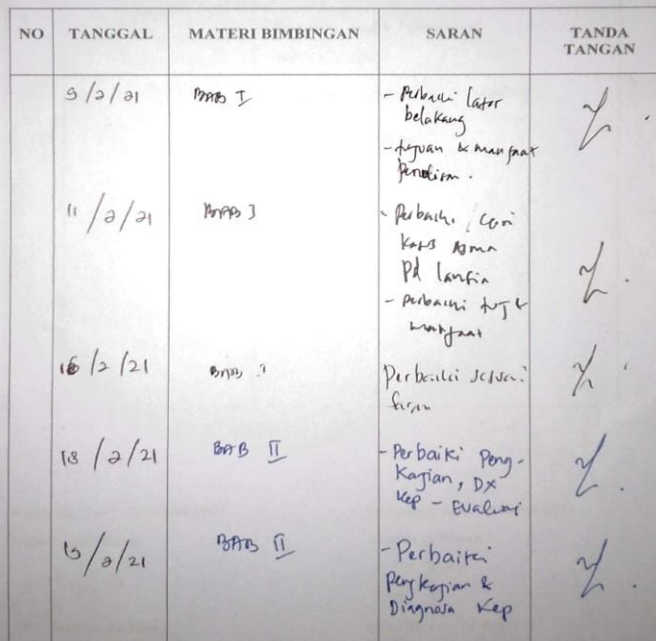 NO TANGGAL MATERI BIMBINGAN SARAN TANDA
TANGAN
9/2/21 BAB I - Perbaiki latar
belakang
- tujuan & manfaat
penulisan.
11/2/21 BAB I - Perbaiki, cari
kasus Asma
Pd lansia
- perbaiki tuj &
manfaat
16/2/21 BAB I Perbaiki sesuai
saran
18/2/21 BAB II - Perbaiki Peng-
Kajian, DX
Kep - Evaluasi
/2/21 BAB II - Perbaiki
Pengkajian &
Diagnosa Kep